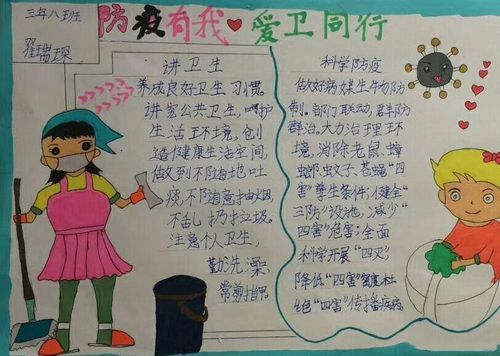 三年八班
翟瑞琛
防疫有我 爱卫同行
讲卫生
养成良好卫生习惯。
讲究公共卫生,呵护
生活环境,创
造健康生活空间,
做到不随地吐
痰,不随意抽烟,
不乱扔垃圾。
注意个人卫生,
勤洗澡,
常剪指甲。
科学防疫
做好病媒生物防
制。部门联动,群防
群治。大力治理环
境,消除老鼠、蟑
螂、蚊子、苍蝇“四
害”孳生条件;健全“
三防”设施,减少“
四害”危害;全面
科学开展“四灭”
降低“四害”密度杜
绝“四害”传播疾病